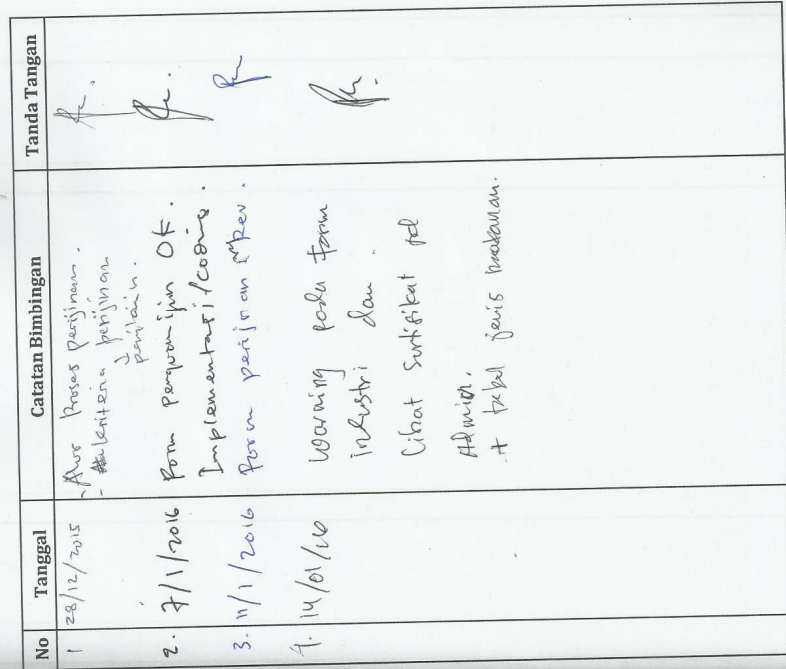 No Tanggal Catatan Bimbingan Tanda Tangan
1 28/12/2015 - Alur Proses perijinan.
- kriteria perijinan
& penilain.
2. 7/1/2016 Form pengvomijin OK.
Implementasi/coding.
3. 11/1/2016 Form perijinan Rev.
4. 14/01/16 warning pada form
industri dan
Lihat Sertifikat pd
Admin.
+ tabel jenis makanan.